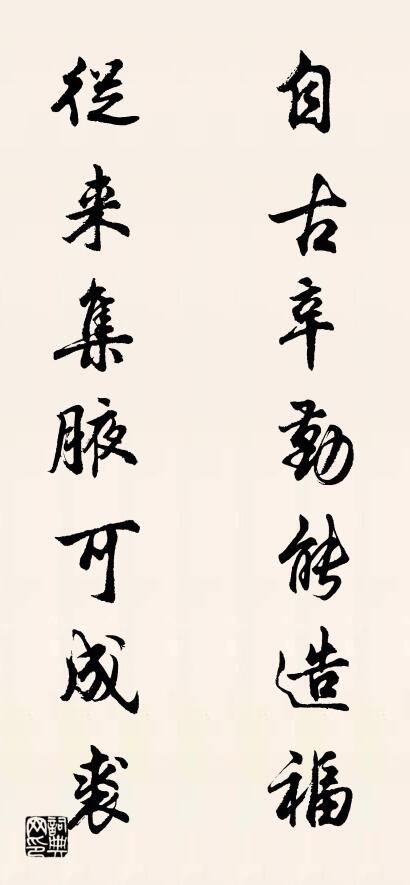 自古辛勤能造福
從来集腋可成裘
詞典网